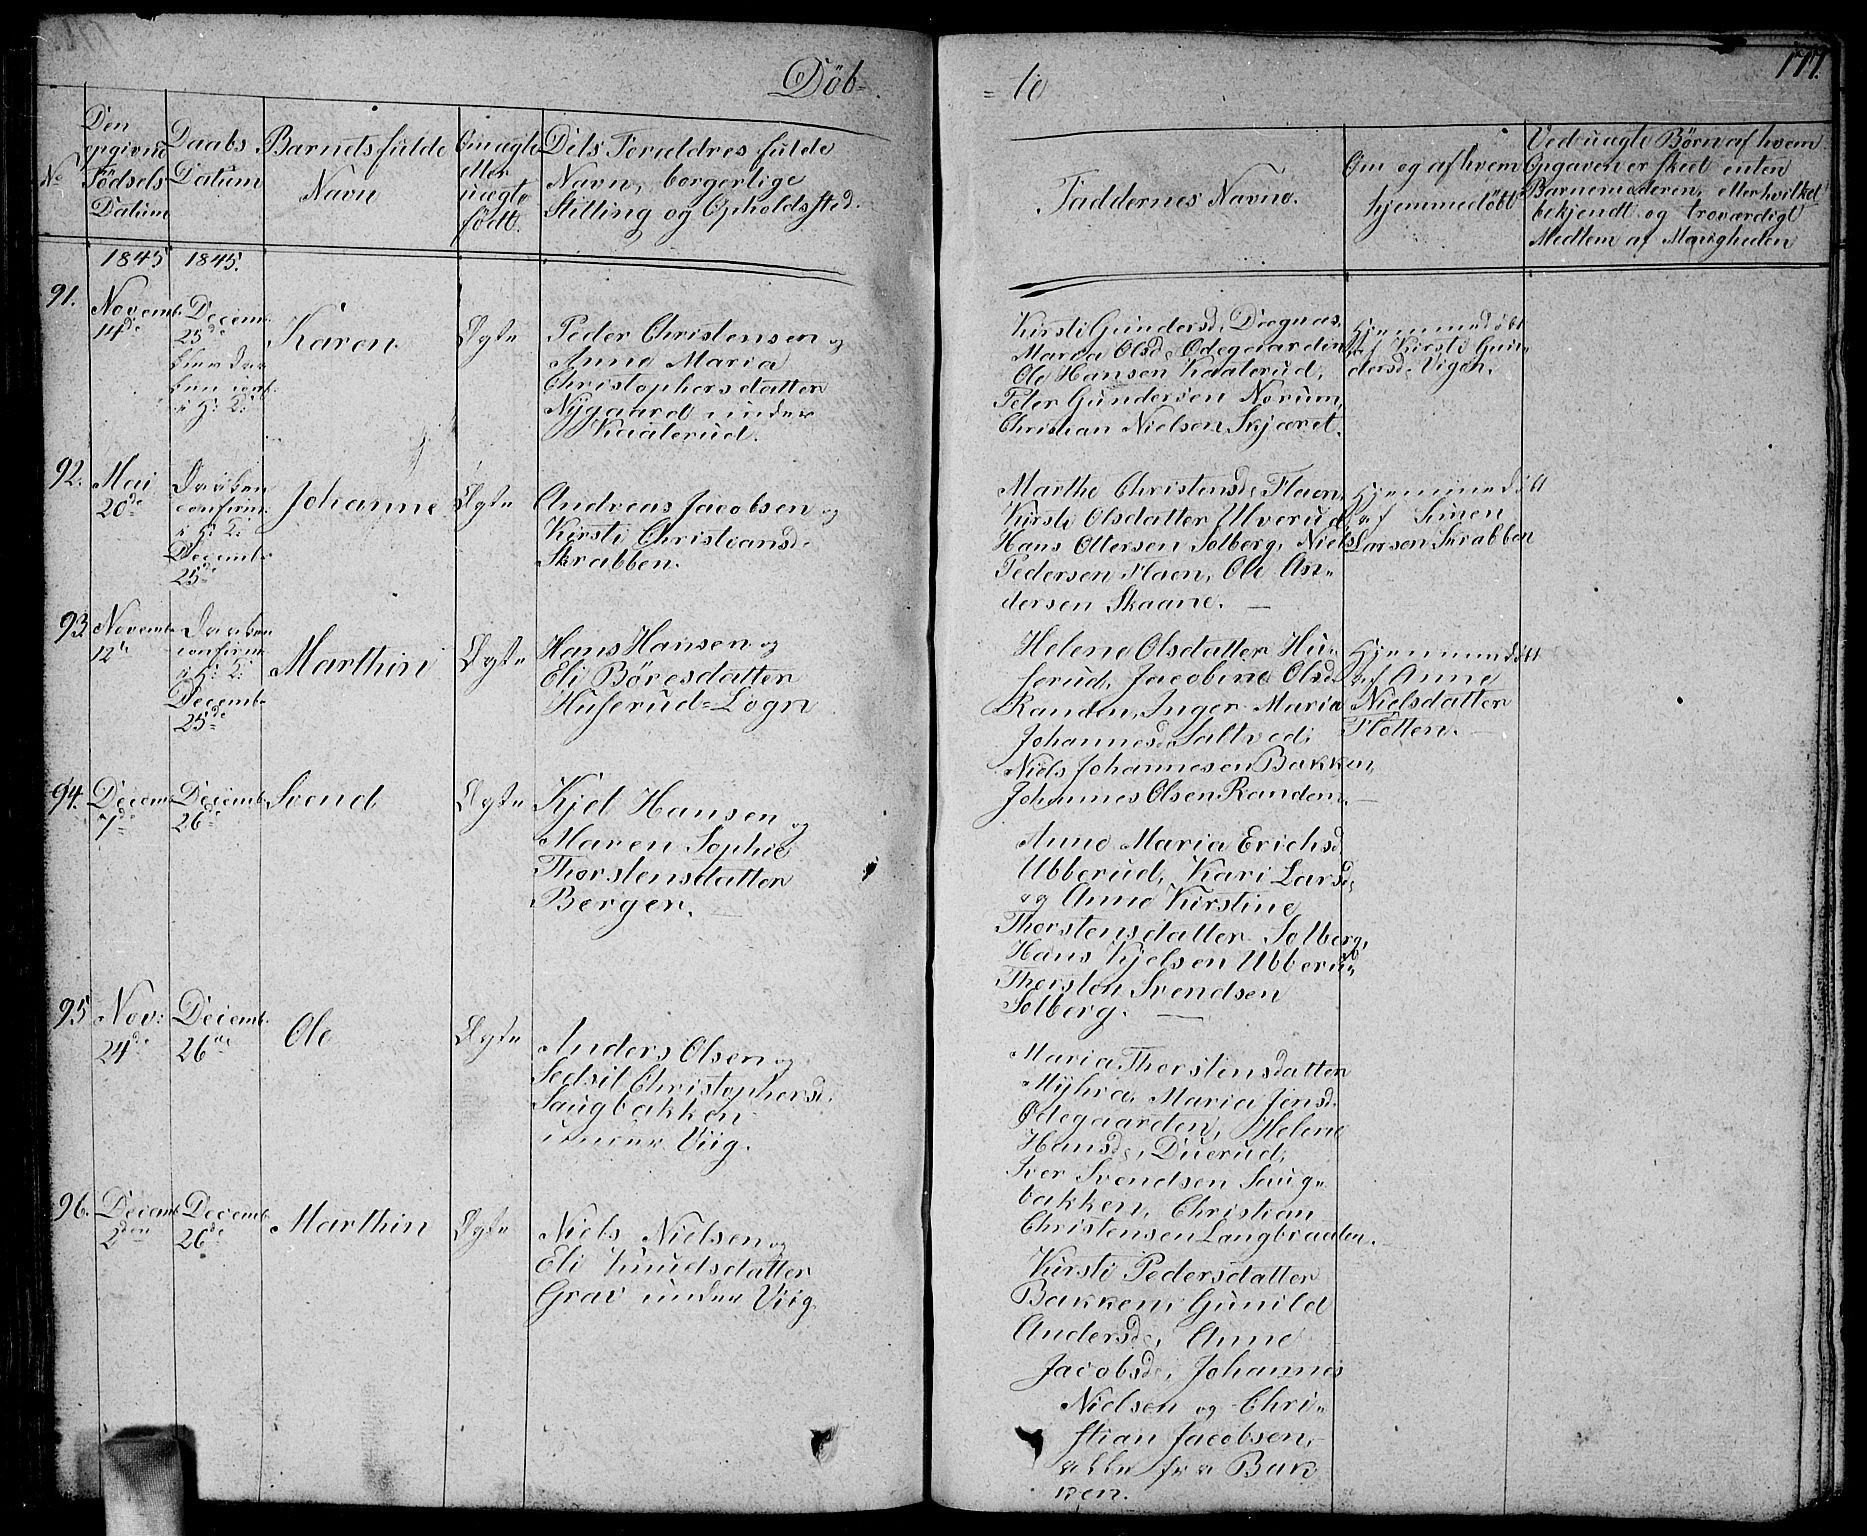 Døb-
= te
177.
No
Den opgivne Fødsels Datum
Daabs Datum
Barnets fulde Navn
Om ægte eller uægte født.
Dets Foreldres fulde Navn, borgerlige Stilling og Opholdssted.
Faddernes Navne.
Om og af hvem hjemmedøbt
Ved uægte Børn af hvem Opgaven er skeet enten Barnemoderen, eller hvilket bekjendt og troværdigt Medlem af Menigheden
1845 1845.
91.
Novemb.
14de
Decemb.
25de
Karen
Ægte
Peder Christensen og
Anne Maria
Christophersdatter
Nygaard under
Kaalerud.
Kirsti Gundersd:
Maria Olsd: Ødegaarden
Ole Hansen Kaalerud,
Peter Gundersen Norum,
Christian Nielsen Skjæret.
Hjemmedøbt
af Kirsti Gun-
dersd: Vigen.
92.
Mai
20de
Daaben
confirm.
i H: K:
Decemb.
25de
Johanne
Ægte
Andreas Jacobsen og
Kirsti Christiansd:
Skrabben.
Marthe Christensd: Flaen,
Kirsti Olsdatter Ulverud,
Hans Ottersen Solberg, Niels
Pedersen Flaen, Ole An-
dersen Skaane. —
Hjemmedøbt
af Simen
Larsen Skrabben
93
Novemb.
12te
Daaben
confirm.
i H: K:
Decemb.
25de
Marthin
Ægte
Hans Hansen og
Eli Børesdatter
Huserud=Eogn
Helene Olsdatter Hu-
serud, Jacobine Olsd:
Randen, Inger Maria
Johannesd: Saltved,
Niels Johannesen Bakken,
Johannes Olsen Randen. —
Hjemmedøbt
af Anne
Nielsdatter
Flotten. —
94.
Decemb.
7de
Decemb.
26de
Svend
Ægte
Kjel Hansen og
Maren Sophie
Thorstensdatter
Bergen. —
Anne Maria Erichsd:
Ubberud, Kari Larsd:
og Anne Kirstine
Thorstensdatter Solberg,
Hans Kjelsen Ubberud
Thorsten Svendsen
Solberg. —
95
Nov:
24de
Decemb.
26de
Ole
Ægte
Anders Olsen og
Sedsil Christophersd:
Saugbakken
under Viig.
Maria Thorstensdatter
Myhra, Maria Jensd:
Ødegaarden, Helene
Hansd:, Duerud,
Iver Svendsen Saug-
bakken, Christian
Christensen Langbraaten. —
96.
Decemb.
2den
Decemb.
26de
Marthin
Ægte
Niels Nielsen og
Eli Knudsdatter
Grav under Viig
Kirsti Pedersdatter
Bakken, Gunild
Andersd:, Anne
Jacobsd:, Johannes
Nielsen og Chri-
stian Jacobsen,
alle fra Bak
ken.